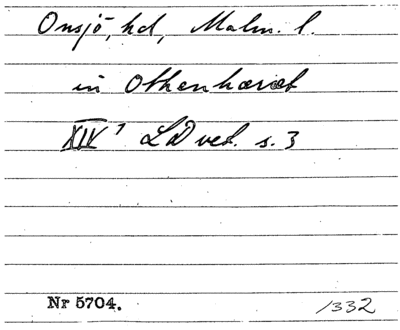 Onsjö, hd, Malm. l.
in Othenhæræt
XIV¹ LDved. s. 3
Nr 5704.
1332